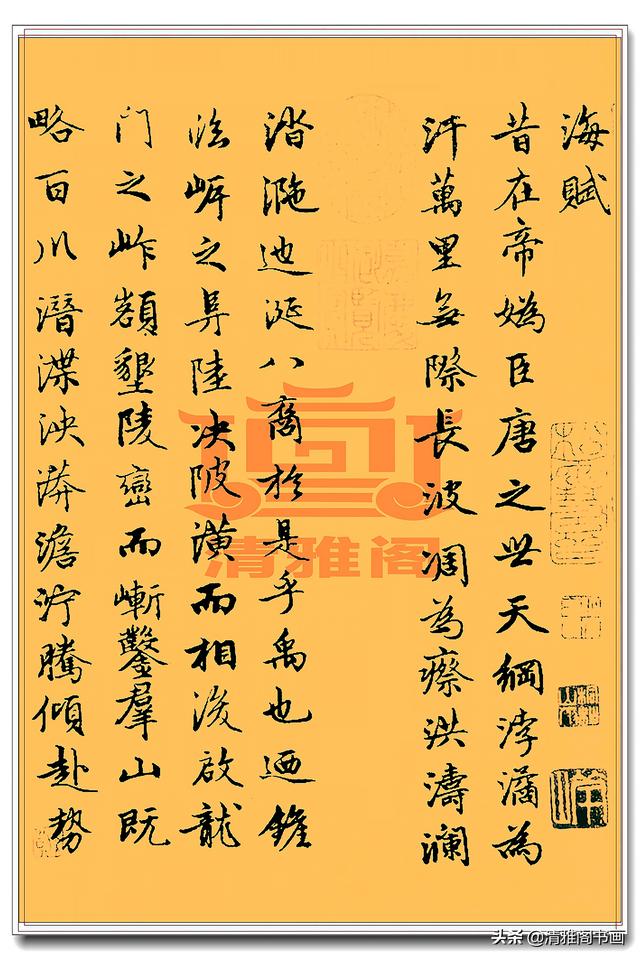 海賦
昔在帝嬀臣唐之世天綱浡潏為
汗萬里無際長波凋為瘵洪濤瀾
涾迆涎八裔於是乎禹也迺鏟
臨崖之阜陸决陂潢而相沷啟龍
門之岝嶺墾陵巒而嶄鑿羣山既
略百川潛渫泱漭澹泞騰傾赴勢
清雅阁
头条 @清雅阁书画